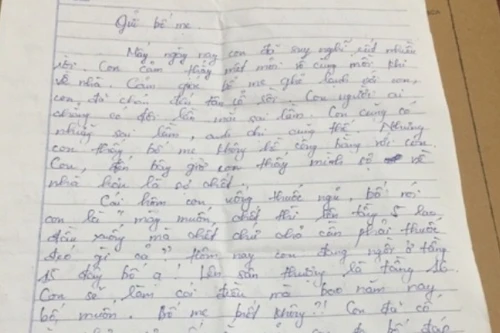 Gửi bố mẹ.
Mấy ngày nay con đã suy nghĩ rất nhiều
rồi. Con cảm thấy mệt mỏi vô cùng mỗi khi
về nhà. Cảm giác bố mẹ ghẻ lạnh với con,
con đã chịu đủ rồi. Con người ai
chẳng có đôi lần mắc sai lầm. Con cũng có
những sai lầm, anh chị cũng thế. Nhưng
con thấy bố mẹ không hề công bằng với con.
Con, đến bây giờ con thấy mình sợ về
nhà hơn là sợ chết.
Cái hôm con uống thuốc ngủ, bố nói
con là "mày muốn chết thì lên tầng 5 lao
đầu xuống mà chết chứ chả cần phải thuốc
gì cả" Hôm nay con đang ngồi ở tầng
15 đây bố ạ! Lên sân thượng là tầng 16.
Con sẽ làm cái điều mà bao năm nay
bố muốn. Bố mẹ biết không?! Con đã có